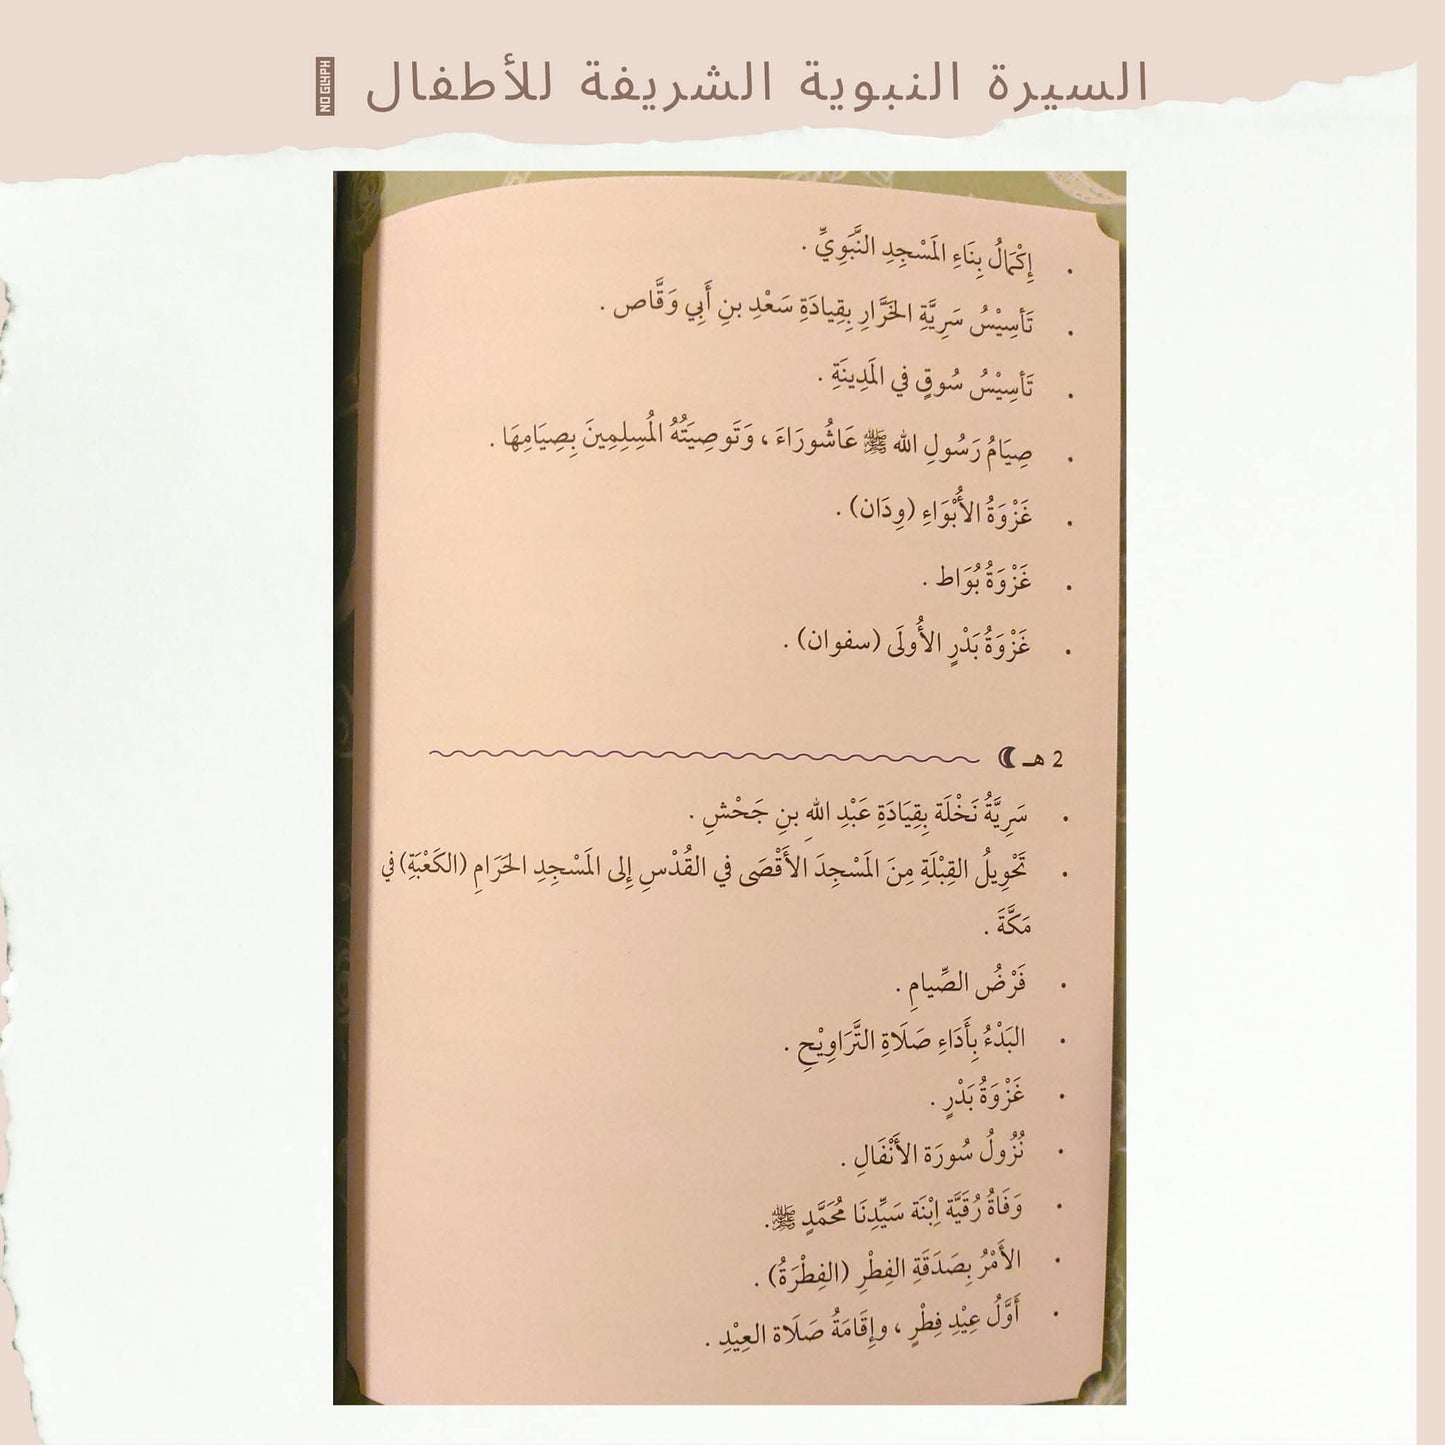 السيرة النبوية الشريفة للأطفال NO GLYPH
• إِكْمَالُ بِنَاءِ المَسْجِدِ النَّبَوِيِّ .
• تَأسِيْسُ سَرِيَّةِ الخَرَّارِ بِقِيادَةِ سَعْدِ بنِ أَبِي وَقَّاص .
• تَأسِيْسُ سُوقٍ في المَدِينَةِ .
• صِيَامُ رَسُولِ الله ﷺ عَاشُورَاءَ ، وَتَوصِيَتُهُ المُسلِمِينَ بِصِيَامِهَا .
• غَزْوَةُ الأَبْوَاءِ (وِدَان) .
• غَزْوَةُ بُوَاط .
• غَزْوَةُ بَدْرٍ الأُولَى (سفوان) .
2 هـ
• سَرِيَّةُ نَخْلَة بِقِيَادَةِ عَبْدِ اللهِ بنِ جَحْشِ .
• تَحْوِيلُ القِبْلَةِ مِنَ المَسْجِدَ الأَقْصَى في القُدْسِ إِلى المَسْجِدِ الحَرَامِ (الكَعْبَةِ) في
مَكَّةَ .
• فَرْضُ الصِّيامِ .
• البَدْءُ بِأَدَاءِ صَلَاةِ التَّرَاوِيْحِ .
• غَزْوَةُ بَدْرٍ .
• نُزُولُ سُورَة الأَنْفَالِ .
• وَفَاةُ رُقَيَّة اِبْنَة سَيِّدِنَا مُحَمَّدٍ ﷺ.
• الأَمْرُ بِصَدَقَةِ الفِطْرِ (الفِطْرَةُ) .
• أَوَّلُ عِيْدِ فِطْرٍ ، وإِقَامَةُ صَلَاة العِيْدِ .